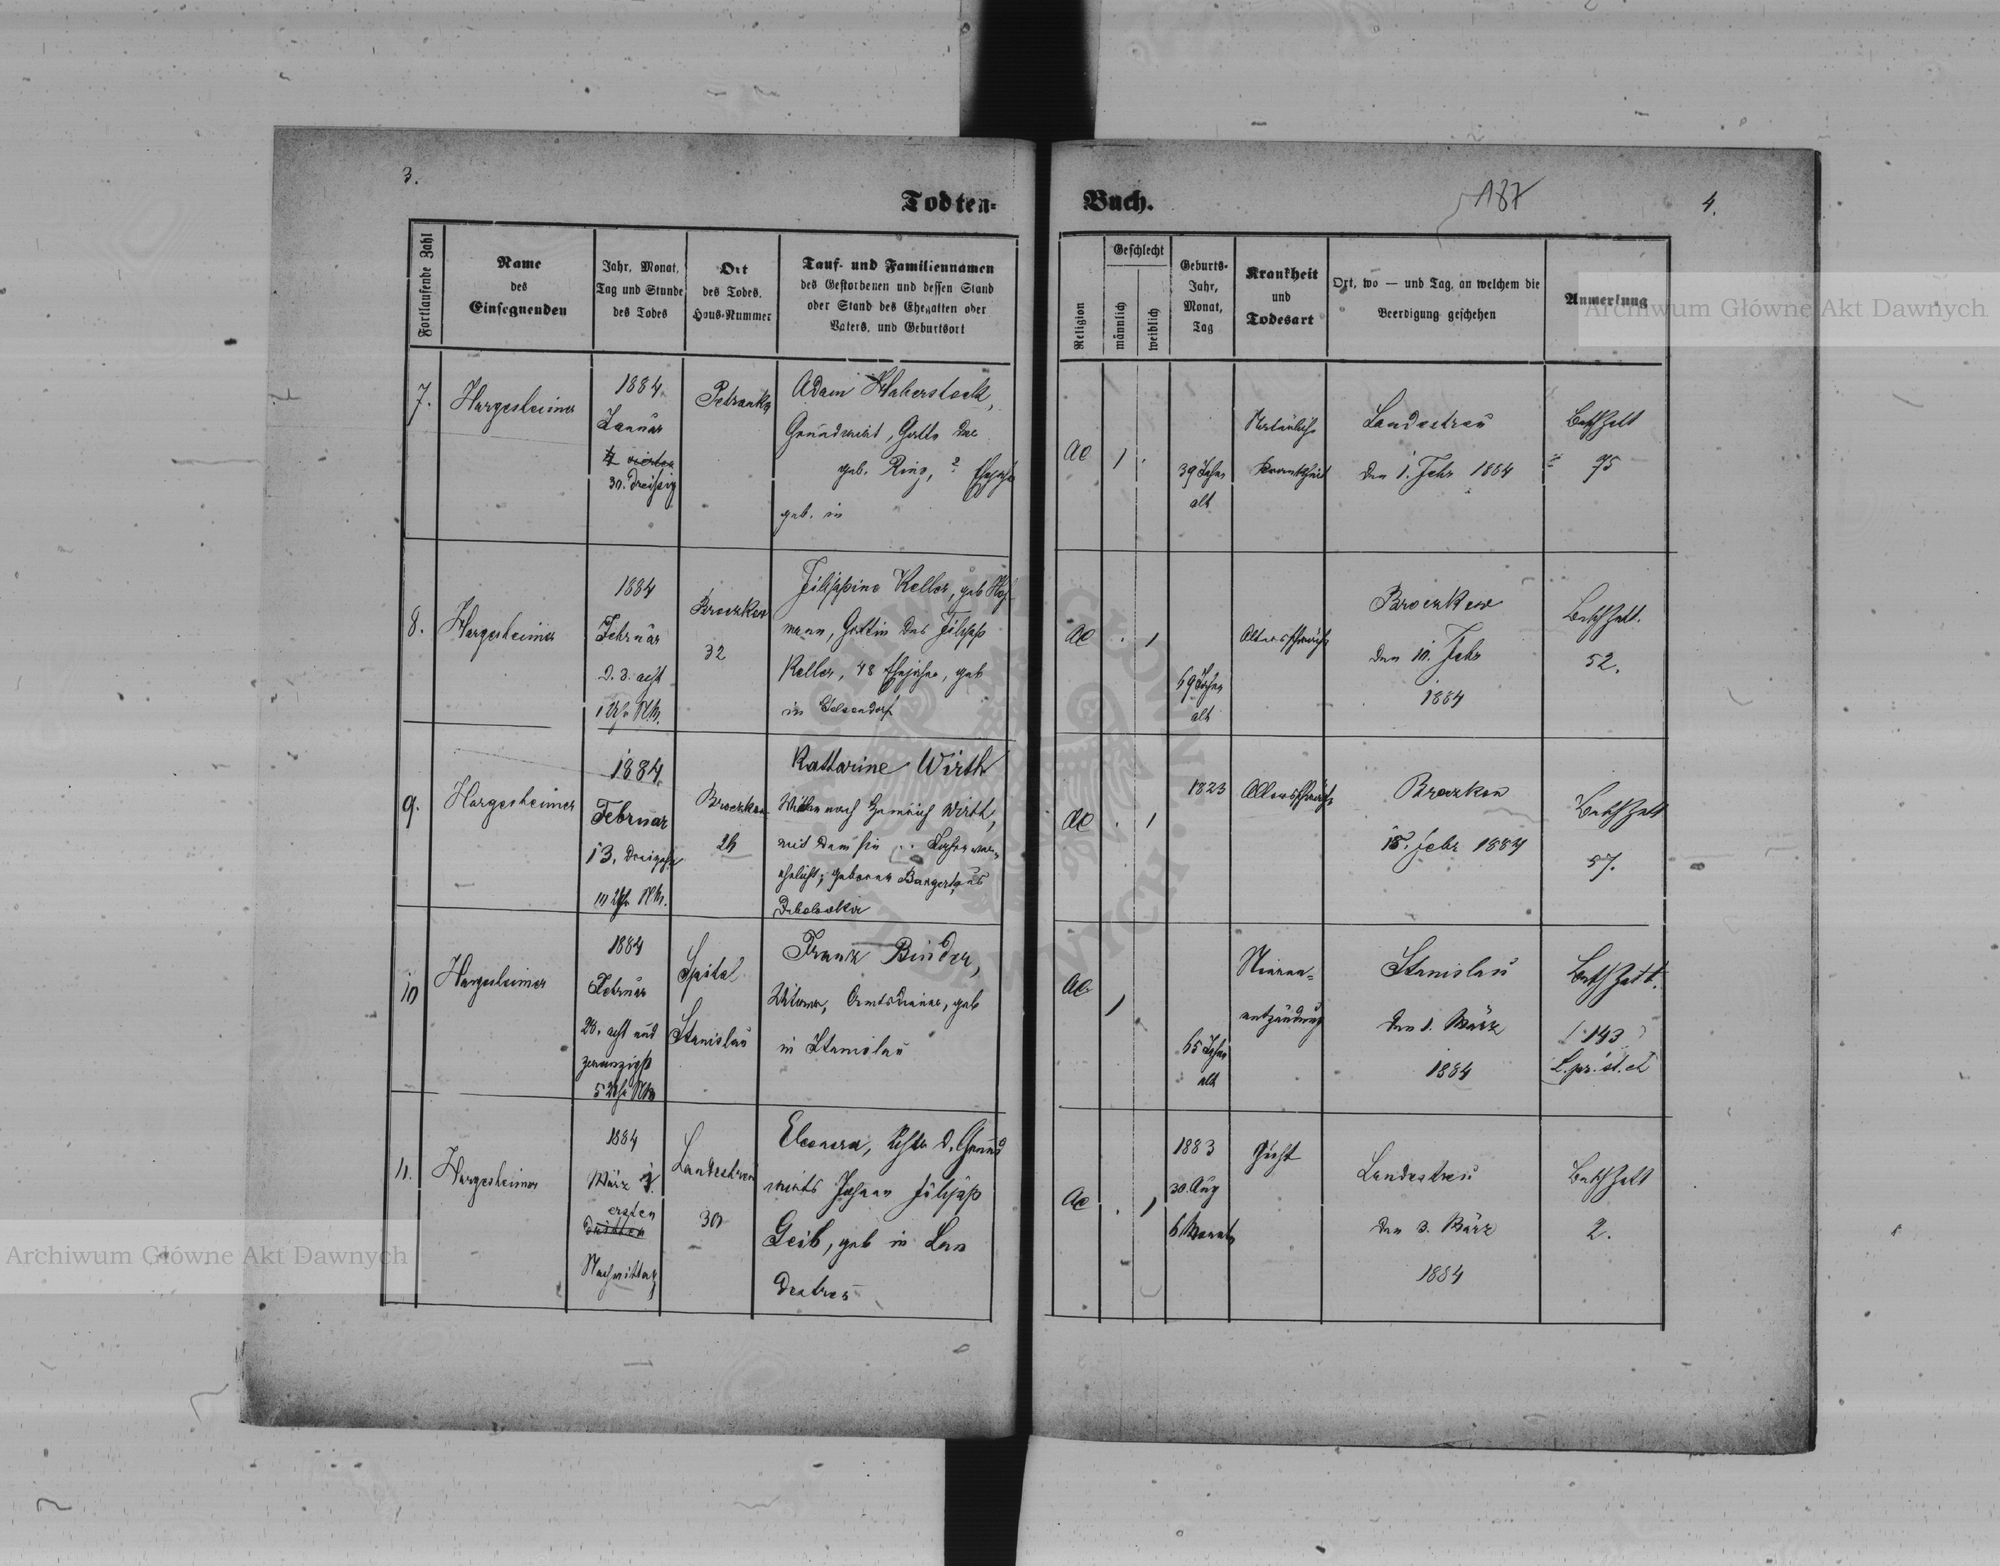 3.
Todten-
Fortlaufende Zahl
Name
des
Einsegnenden
Jahr, Monat,
Tag und Stunde
des Todes
Ort
des Todes,
Haus-Nummer
Tauf- und Familiennamen
des Gestorbenen und dessen Stand
oder Stand des Ehegatten oder
Vaters, und Geburtsort
7.
Hargesheimer
1884
Januar
4 vierten
30. dreißig
Petranka
Adam Haberstock,
Grundwirt, Gatte der
geb. Ring, ? Ehejahre
geb. in
8.
Hargesheimer
1884
Februar
d. 8. acht
1 Uhr NM.
Broczkow
32
Filippine Keller, geb Hof-
mann, Gattin des Filipp
Keller, 48 Ehejahre, geb
in Gelsendorf
9.
Hargesheimer
1884
Februar
13. dreizehn
Broczkow
26
Kattarine Wirth
Witwe nach Heinrich Wirth,
mit dem sie .. Jahre ver-
ehelicht; geborene Bangert aus
10
Hargesheimer
1884
Februar
28. acht und
zwanzigst
5 Uhr NM
Spital
Stanislau
Franz Binder,
Witwer, Amtsdiener, geb
in Stanislau
11.
Hargesheimer
1884
März 1.
ersten
dritten
Nachmittag
Landestreu
30
Eleonora, Tochter d. Grund
wirts Johann Filipp
Geib, geb in Lan
destreu
Buch.
187
4.
Religion
Geschlecht
männlich
weiblich
Geburts-
Jahr,
Monat,
Tag
Krankheit
und
Todesart
Ort, wo — und Tag, an welchem die
Beerdigung geschehen
Anmerkung
AC
1
39 Jahre
alt
Natürliche
Krankheit
Landestreu
den 1. Febr 1884
75
AC
1
69 Jahre
alt
Altersschwäche
Broczkow
den 10. Febr
1884
52.
AC
1
1823
Altersschwäche
Broczkow
15. Febr 1884
57.
AC
1
65 Jahre
alt
Nieren-
entzündung
Stanislau
den 1. März
1884
143
AC
1
1883
30. Aug
6 Monate
Gicht
Landestreu
den 3. März
1884
2.
Archiwum Główne Akt Dawnych
Archiwum Główne Akt Dawnych